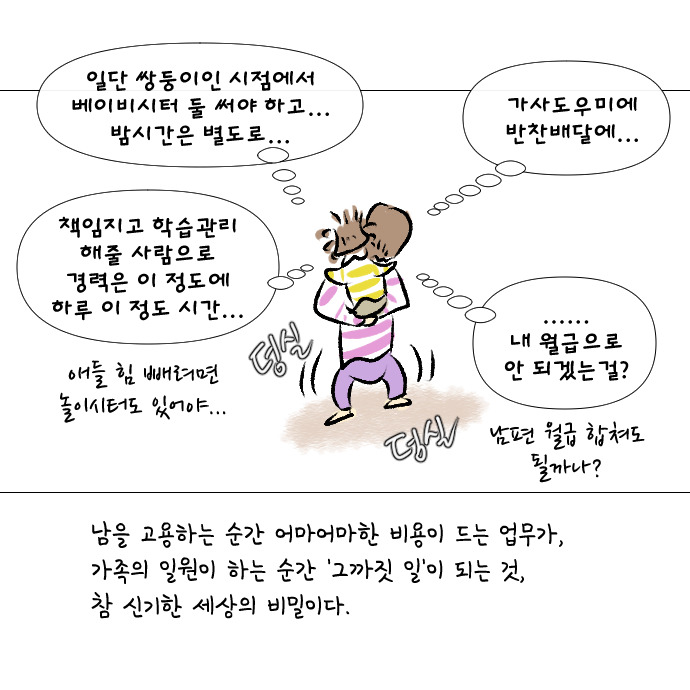 일단 쌍둥이인 시점에서
베이비시터 둘 써야 하고...
밤시간은 별도로...
가사도우미에
반찬배달에...
책임지고 학습관리
해줄 사람으로
경력은 이 정도에
하루 이 정도 시간...
애들 힘 빼려면
놀이시터도 있어야...
......
내 월급으로
안 되겠는걸?
남편 월급 합쳐도
될까나?
덩실
덩실
남을 고용하는 순간 어마어마한 비용이 드는 업무가,
가족의 일원이 하는 순간 '그까짓 일'이 되는 것,
참 신기한 세상의 비밀이다.